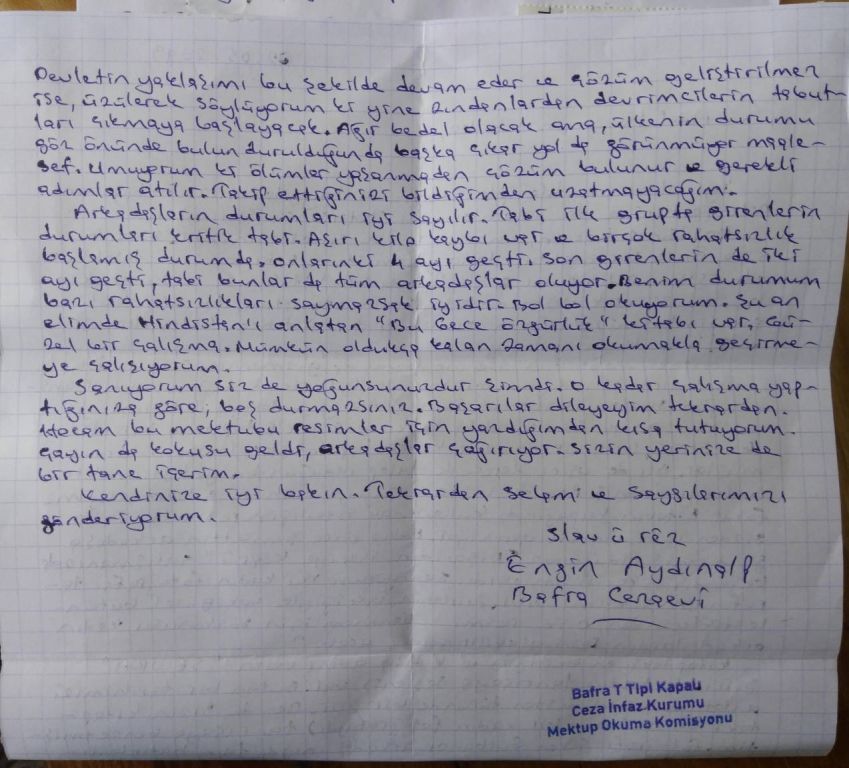 Devletin yaklaşımı bu şekilde devam eder ve çözüm geliştirilmez
ise, üzülerek söylüyorum ki yine zındanlardan devrimcilerin tabut-
ları çıkmaya başlayacak. Ağır bedel olacak ama, ülkenin durumu
göz önünde bulundurulduğunda başka çıkar yol da görünmüyor maale-
sef. Umuyorum ki ölümler yaşanmadan çözüm bulunur ve gerekli
adımlar atılır. Takip ettiğinizi bildiğimden uzatmayacağım.
Arkadaşların durumları iyi sayılır. Tabi ilk grupta girenlerin
durumları kritik tabi. Aşırı kilo kaybı var ve birçok rahatsızlık
başlamış durumda. Onlarınki 4 ayı geçti. Son girenlerin de iki
ayı geçti, tabi bunlar da tüm arkadaşlar oluyor. Benim durumum
bazı rahatsızlıkları saymazsak iyidir. Bol bol okuyorum. Şu an
elimde Hindistan'ı anlatan "Bu Gece Özgürlük" kitabı var. Gü-
zel bir çalışma. Mümkün oldukça kalan zamanı okumakla geçirme-
ye çalışıyorum.
Sanıyorum siz de yoğunsunuzdur şimdi. O kadar çalışma yap-
tığınıza göre, boş durmazsınız. Başarılar dileyeyim tekrardan.
Hocam bu mektubu resimler için yazdığımdan kısa tutuyorum.
Çayın da kokusu geldi, arkadaşlar çağırıyor. Sizin yerinize de
bir tane içerim.
Kendinize iyi bakın. Tekrardan selam ve saygılarımızı
gönderiyorum.
Slav û rêz
Engin Aydınalp
Bafra Cezaevi
Bafra T Tipi Kapalı
Ceza İnfaz Kurumu
Mektup Okuma Komisyonu